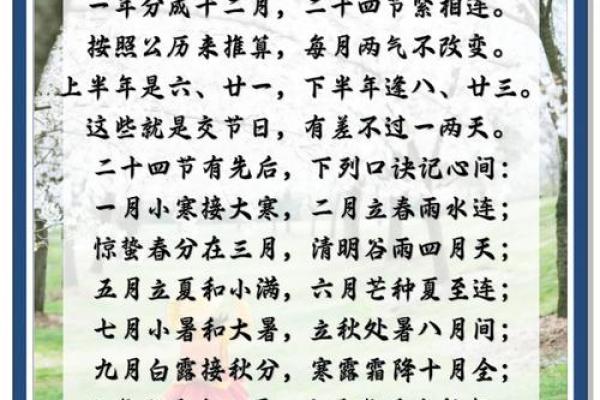 一年分成十二月，二十四节紧相连。
按照公历来推算，每月两气不改变。
上半年是六、廿一，下半年逢八、廿三。
这些就是交节日，有差不过一两天。
二十四节有先后，下列口诀记心间：
一月小寒接大寒，二月立春雨水连；
惊蛰春分在三月，清明谷雨四月天；
五月立夏和小满，六月芒种夏至连；
七月小暑和大暑，立秋处暑八月间；
九月白露接秋分，寒露霜降十月全；